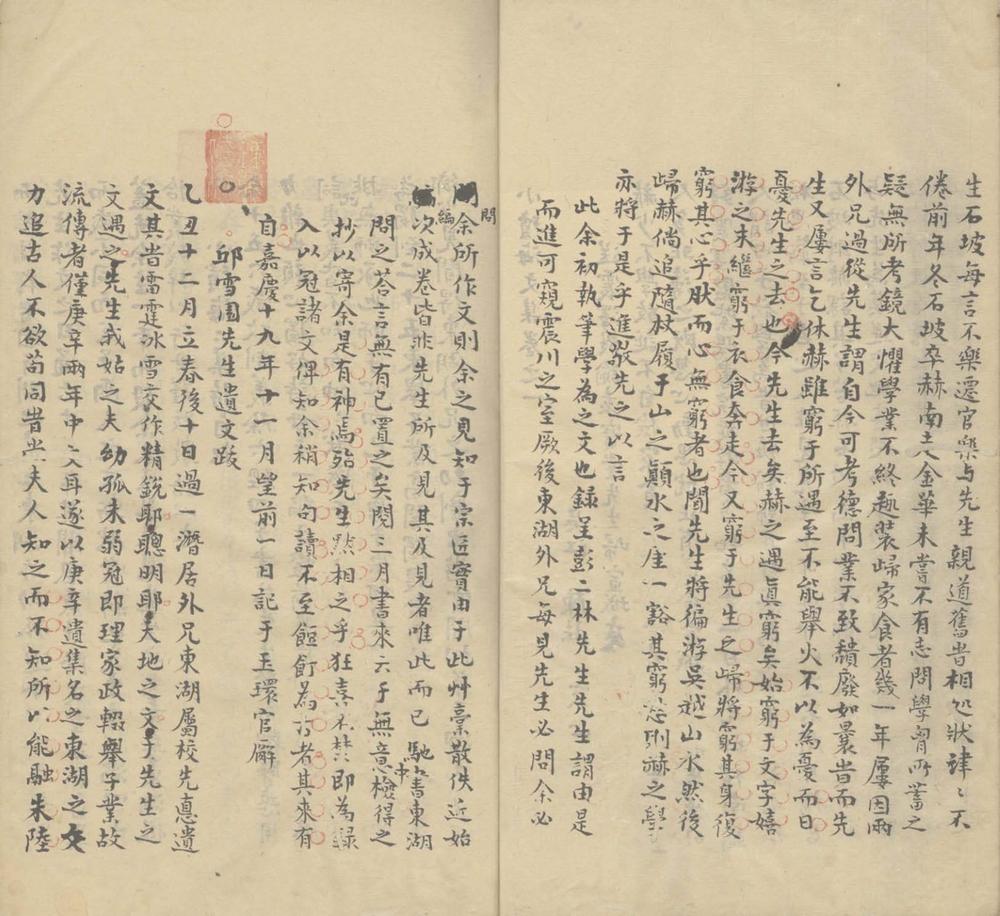 生石坡每言不樂遷官樂与先生親道舊昔相処狀津〻不
倦前年冬石坡卒赫南去金華未嘗不有志問學胷所蓄之
疑無所考鏡大懼學業不終趣裝歸家食者幾一年屢因兩
外兄過從先生謂自今可考德問業不致積廢如曩昔而先
生又屢言乞休赫雖窮于所遇至不能舉火不以為憂而日
憂先生之去也今先生去矣赫之遇眞窮矣始窮于文字嬉
游之末繼窮于衣食奔走今又窮于先生之歸將窮其身復
窮其心乎肰而心無窮者也聞先生將徧游吳越山水然後
歸赫倘追隨杖履于山之顛水之厓一豁其窮愁則赫之學
亦將于是乎進敬先之以言
此余初執筆學為之文也錄呈彭二林先生先生謂由是
而進可窺震川之室厥後東湖外兄每見先生必問余必
問余所作文則余之見知于宗匠實由于此艸稾散佚近始
編次成卷皆非先生所及見其及見者唯此而已馳書東湖
問之荅言無有已置之矣閱三月書來云于無意中撿得之
抄以寄余是有神焉殆先生默相之乎狂喜不禁即為録
入以冠諸文俾知余稍知句讀不至餖飣為者其來有
自嘉慶十九年十一月望前一日記于玉環官廨
○邱雪圃先生遺文跋
乙丑十二月立春後十日過一潛居外兄東湖屬校先悳遺
文其旹雷霆冰雪交作精銳耶聰明耶天地之文于先生之
文遇之先生我姑之夫幼孤未弱冠即理家政輟舉子業故
流傳者僅庚辛兩年中文耳遂以庚辛遺集名之東湖之文
力追古人不欲苟同昔此夫人知之而不知所以能融朱陸